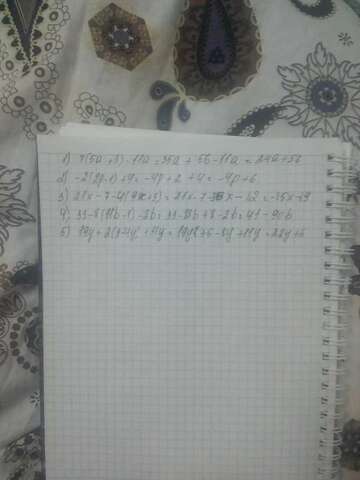 1) 7(5a+8)-11a=35a+56-11a=24a+56
2) -2(2p-1)+4=-4p+2+4=-4p+6
3) 21x-7-4(9x+3)=21x-7-36x-12=-15x-19
4) 33-8(11b-1)-2b=33-88b+8-2b=41-90b
5) 19y+2(3-4y)+11y=19y+6-8y+11y=22y+6